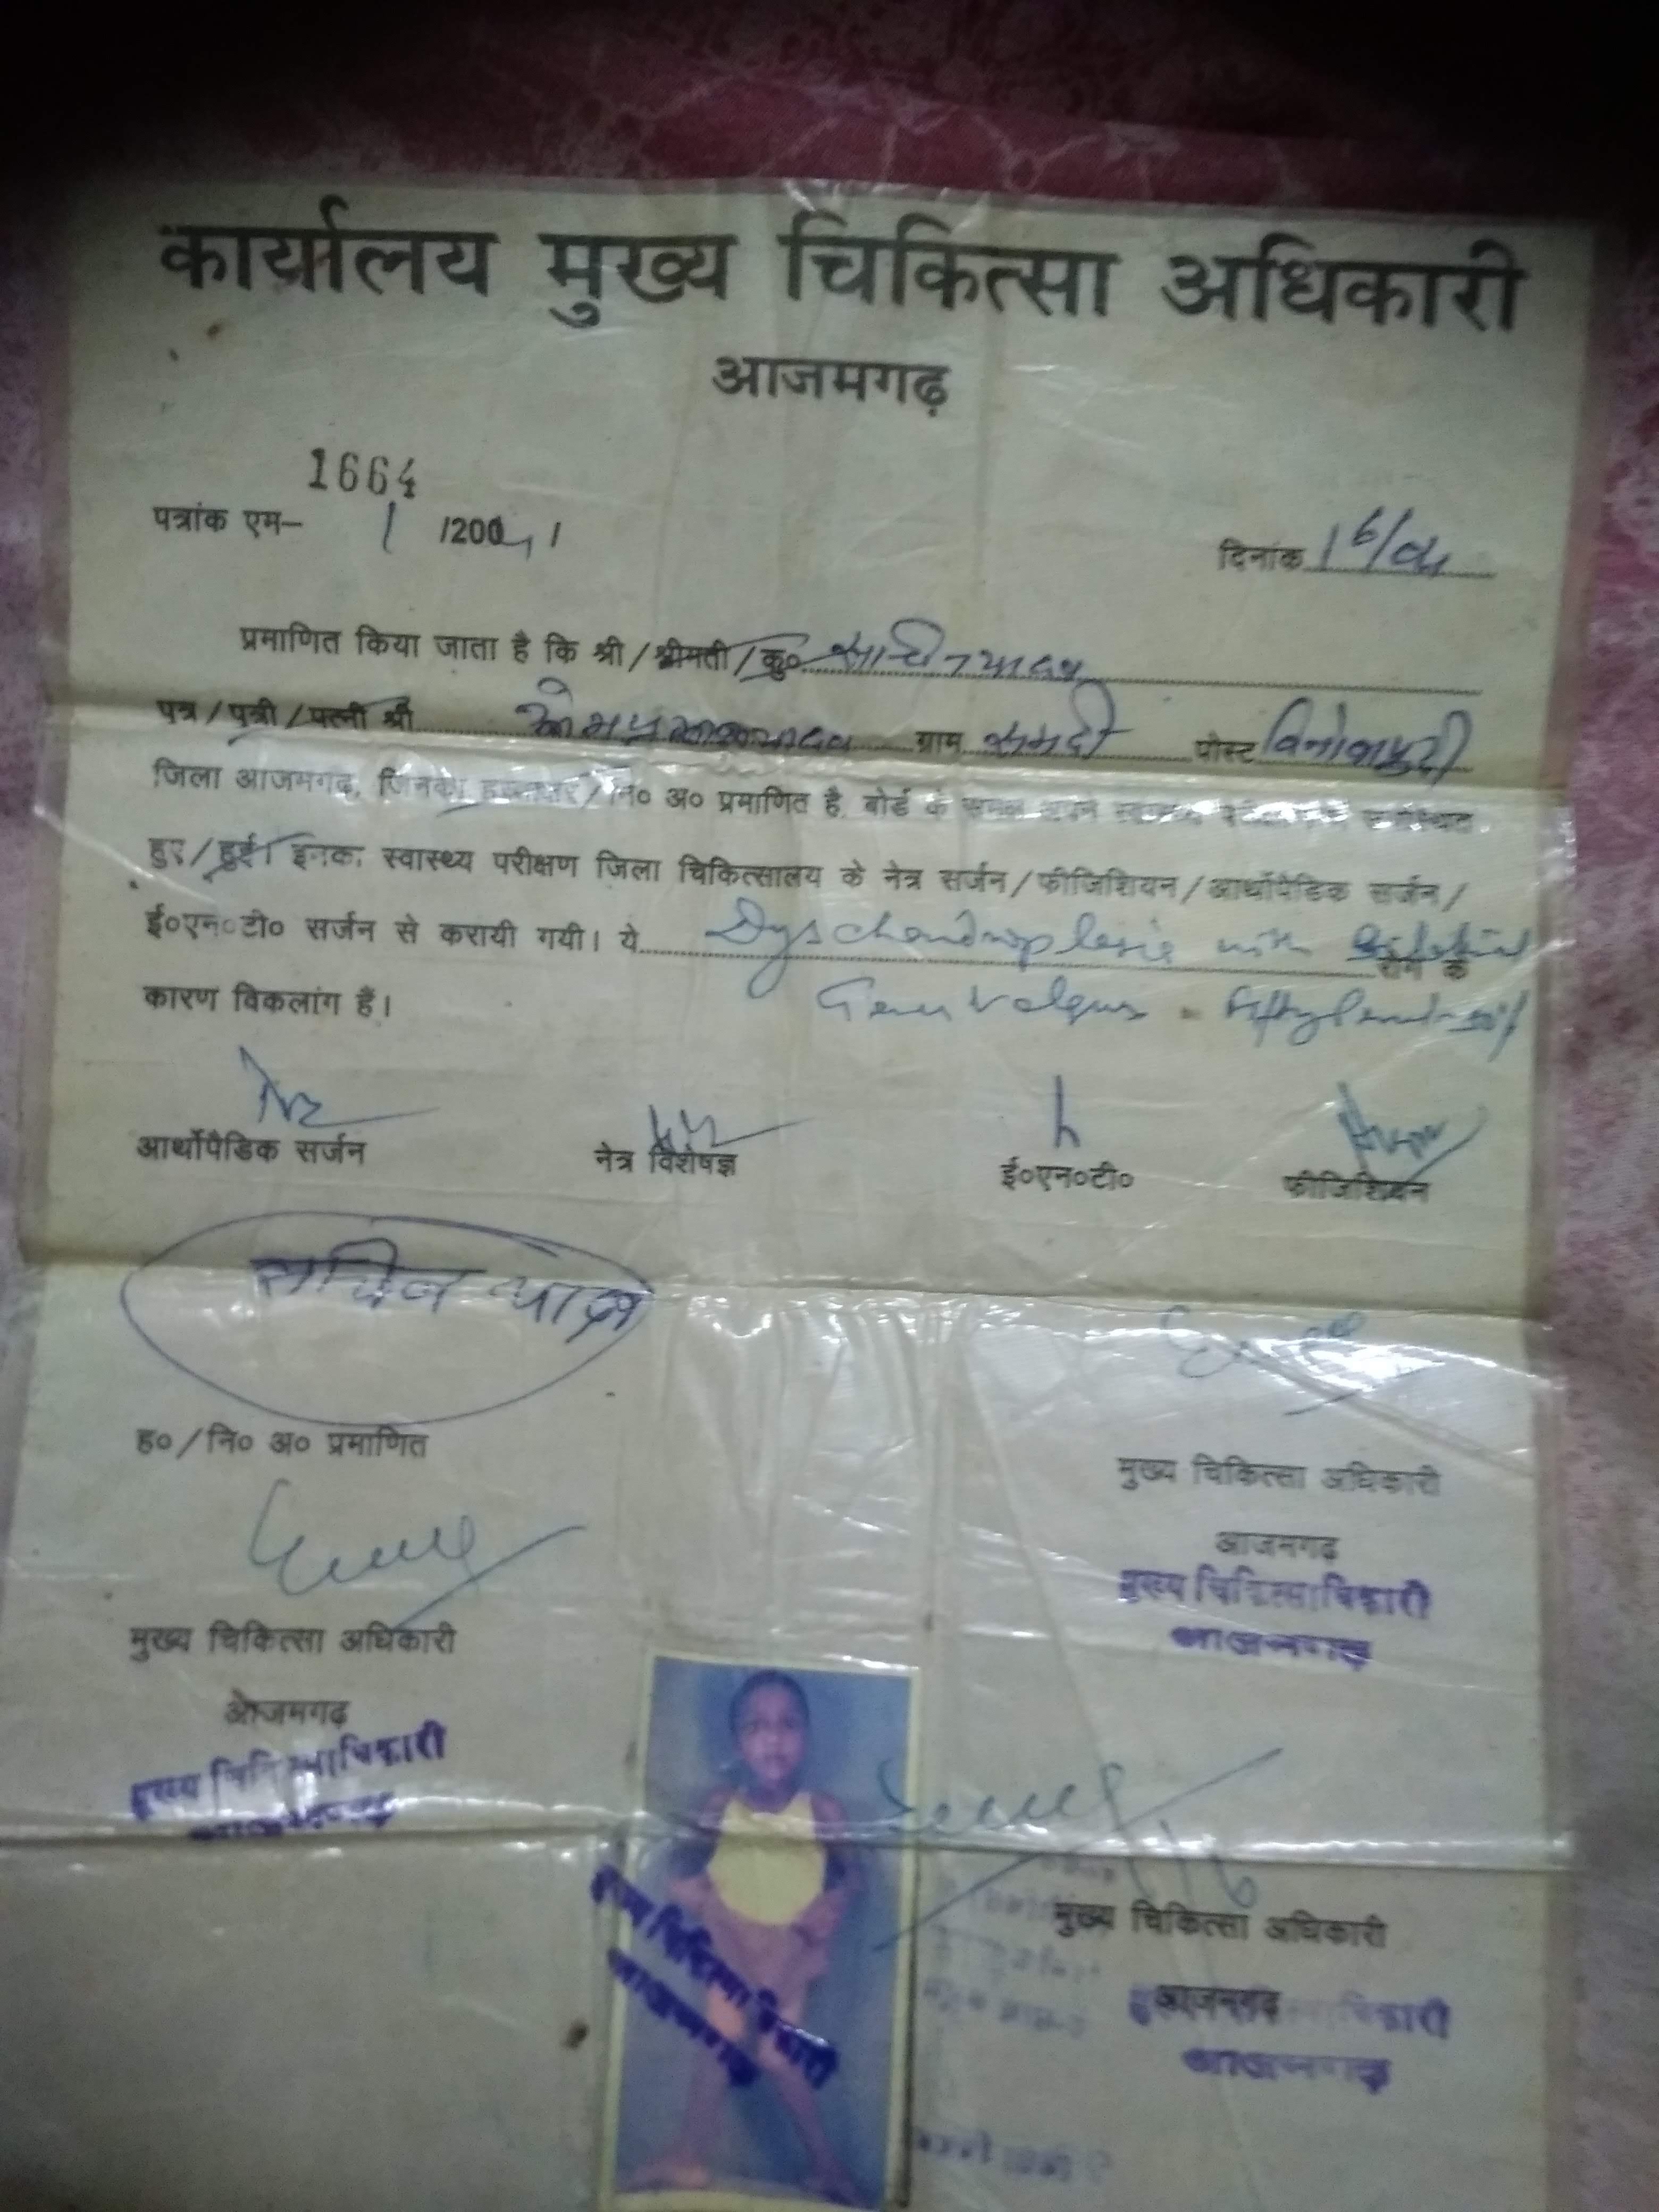 कार्यालय मुख्य चिकित्सा अधिकारी
आजमगढ़
1664
पत्रांक एम- / /2004/
दिनांक 16/04
प्रमाणित किया जाता है कि श्री/श्रीमती/कु० सचिन यादव
पुत्र/पुत्री/पत्नी श्री ओमप्रकाश यादव ग्राम समदी पोस्ट
जिला आजमगढ़, जिनका हस्ताक्षर/नि० अ० प्रमाणित है, बोर्ड के समक्ष अपने स्वास्थ्य
हुए/हुई। इनका स्वास्थ्य परीक्षण जिला चिकित्सालय के नेत्र सर्जन/फीजिशियन/आर्थोपैडिक सर्जन/
ई०एन०टी० सर्जन से करायी गयी। ये Dyschondroplesia with रोग के
कारण विकलांग हैं। Genu Valgus
आर्थोपैडिक सर्जन नेत्र विशेषज्ञ ई०एन०टी० फीजिशियन
सचिन यादव
ह०/नि० अ० प्रमाणित
मुख्य चिकित्सा अधिकारी
आजमगढ़
मुख्य चिकित्साधिकारी
आजमगढ़
मुख्य चिकित्सा अधिकारी
आजमगढ़
मुख्य चिकित्साधिकारी
आजमगढ़
मुख्य चिकित्साधिकारी
आजमगढ़
मुख्य चिकित्सा अधिकारी
आजमगढ़
मुख्य चिकित्साधिकारी
आजमगढ़